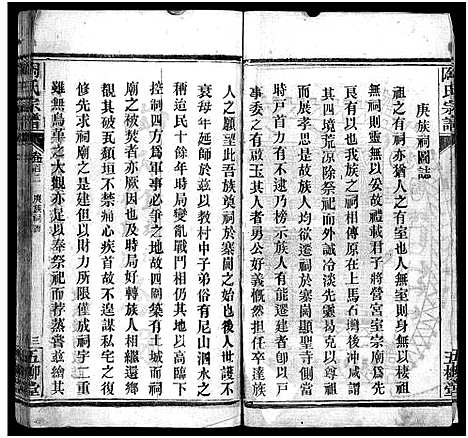 陶氏宗譜
五柳堂
庚族祠圖誌
祖之有祠亦猶人之有室也人無室則無以棲祖
無祠則靈爽無以安故禮載君子將營宮室宗廟爲先
庚族之有祠也由來舊矣原在上馬石灣後因沖扃
其四境荒凉除祭祀而外盡誠冷淡先靈易以
是族中人等急欲遷祠於寨崗顯聖寺側當
時戸首力有不逮乃榜示族人有能獨建者卽以戸
事委之有啟玉其人者勇公好義慨然担任卒達族
人之願望此吾族奠祠於寨崗之始也後人世護不
衰毎年延師於茲以教村中子弟俗有尼山泗水之
稱迨民十餘年時局變亂戰鬥相仍其地以高臨下
控制四方爲軍事必爭之地故四闗築有土城而祠
廟之被焚者亦屢因及時局好轉而村人相繼還鄉
覩其破瓦頽垣不禁痛心疾首故不遑謀私宅之復
先以求祠廟之修但爲財力所限僅成祠宇二重
雖無鳥革之大觀亦足以奉祭祀而荐蒸嘗爰繪其
陶氏宗譜
卷首二
庚族祠誌
三
五柳堂